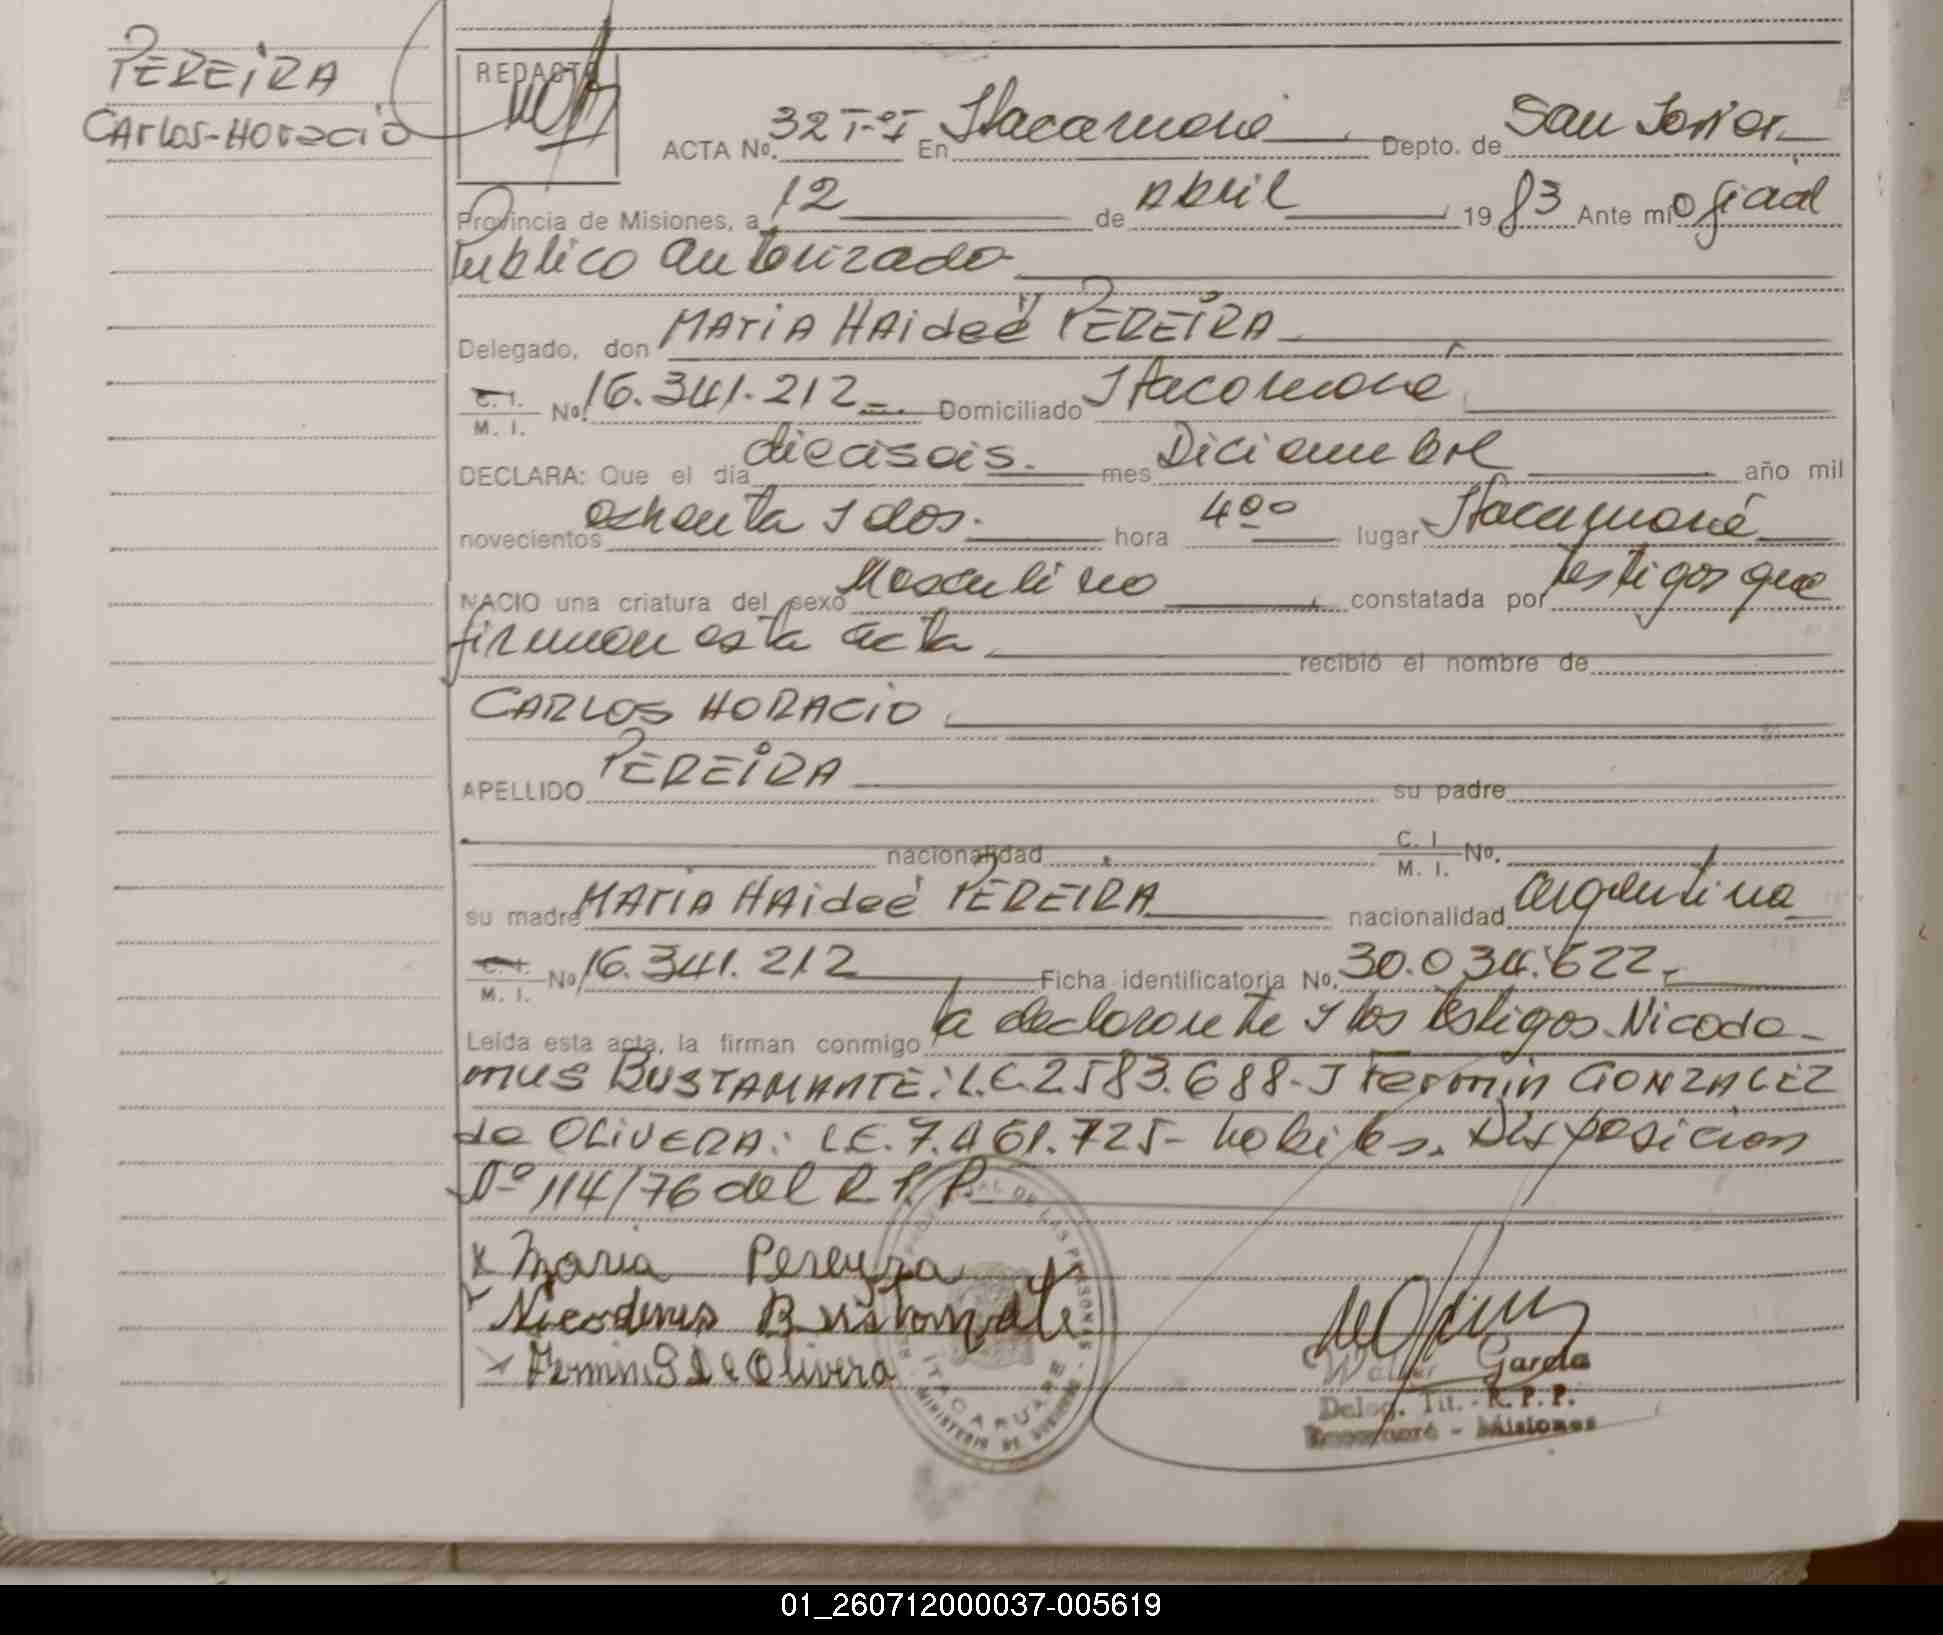 PEREIRA
CARLOS-HORACIO
REDACTO
ACTA No. 32 T-I En Itacaruaré Depto. de San Javier
Provincia de Misiones, a 12 de Abril 1983 Ante mi Oficial
Publico autorizado
Delegado, don MARIA HAideé PEREIRA
C. I. M. I. No. 16.341.212 Domiciliado Itacaruaré
DECLARA: Que el día dieciseis mes Diciembre año mil
novecientos ochenta y dos hora 4oo lugar Itacaruaré
NACIO una criatura del sexo Masculino constatada por testigos que
firman esta acta recibió el nombre de
CARLOS HORACIO
APELLIDO PEREIRA su padre
nacionalidad C. I. M. I. No.
su madre MARIA HAideé PEREIRA nacionalidad argentina
C. I. M. I. No 16.341.212 Ficha identificatoria No. 30.034.622
Leída esta acta, la firman conmigo la declarante y los testigos Nicode-
mus BUSTAMANTE: L.E. 2583.688- y Fermin GONZALEZ
de OLIVERA: L.E. 7.461.725- habiles. Disposicion
Nº 114/76 del R.P.P.
x Maria Pereyra
Nicodemus Bustamante
x Fermin G De Olivera
ITACARUARE
MINISTERIO DE
Walter Garcia
Deleg. Tit. - R.P.P.
Itacaruaré - Misiones
01_260712000037-005619